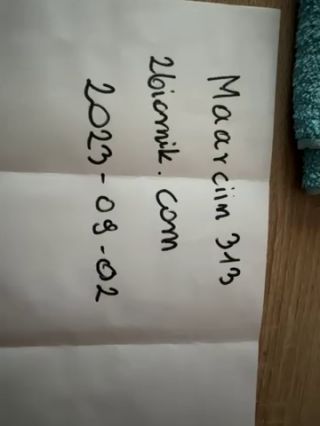 Maarciin 313
zbiornik.com
2023-09-02